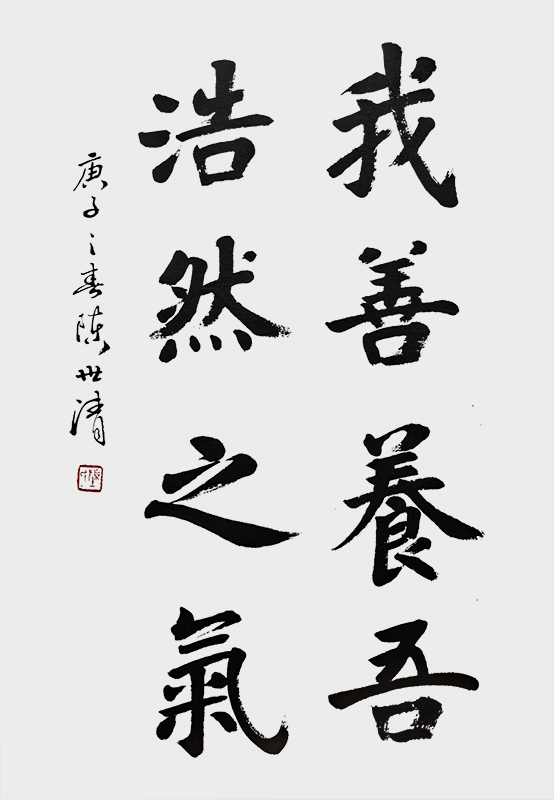 我善養吾
浩然之氣
庚子之春陳世清